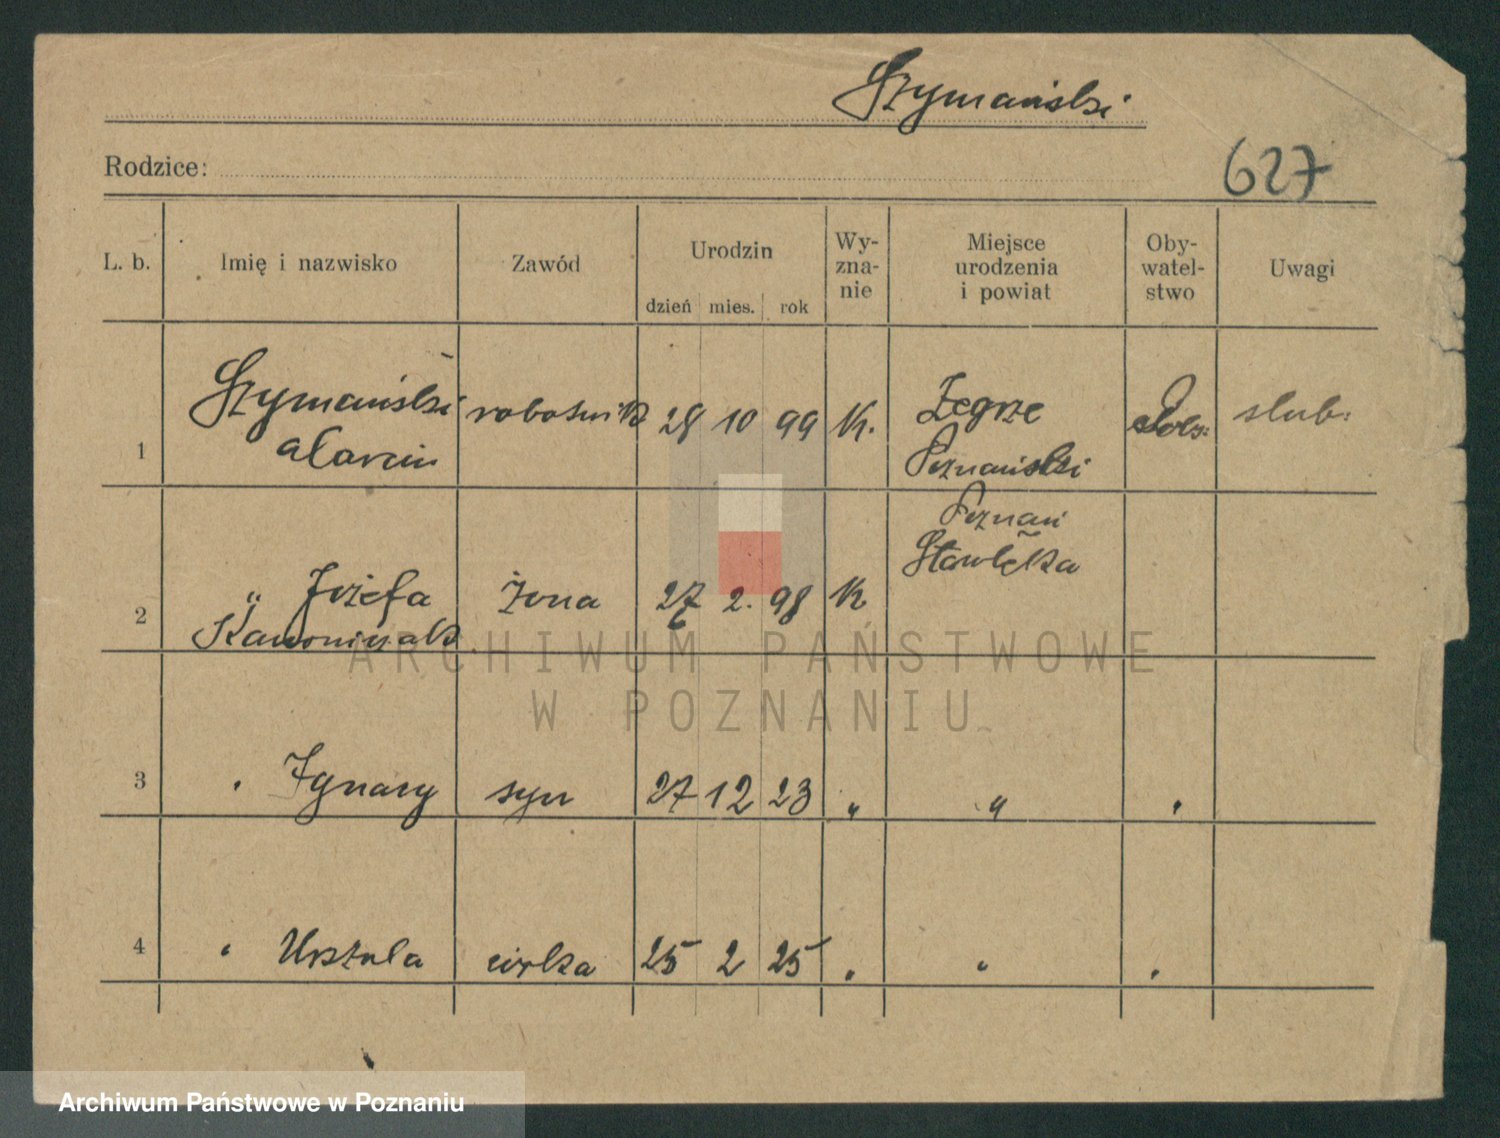 Szymański
Rodzice:
627
L. b. Imię i nazwisko Zawód Urodzin Wy- Miejsce Oby- Uwagi
zna- urodzenia watel-
nie i powiat stwo
dzień mies. rok
Szymański robotnik 28 10 99 K. Żegrze Pols. slub.
1 Marcin Poznański
Poznań
Starołęka
2 " Józefa żona 27 2. 98 K
3 " Ignacy syn 27 12 23 " " "
4 " Urszula córka 25 2 25 " " "
ARCHIWUM PAŃSTWOWE
W POZNANIU
Archiwum Państwowe w Poznaniu